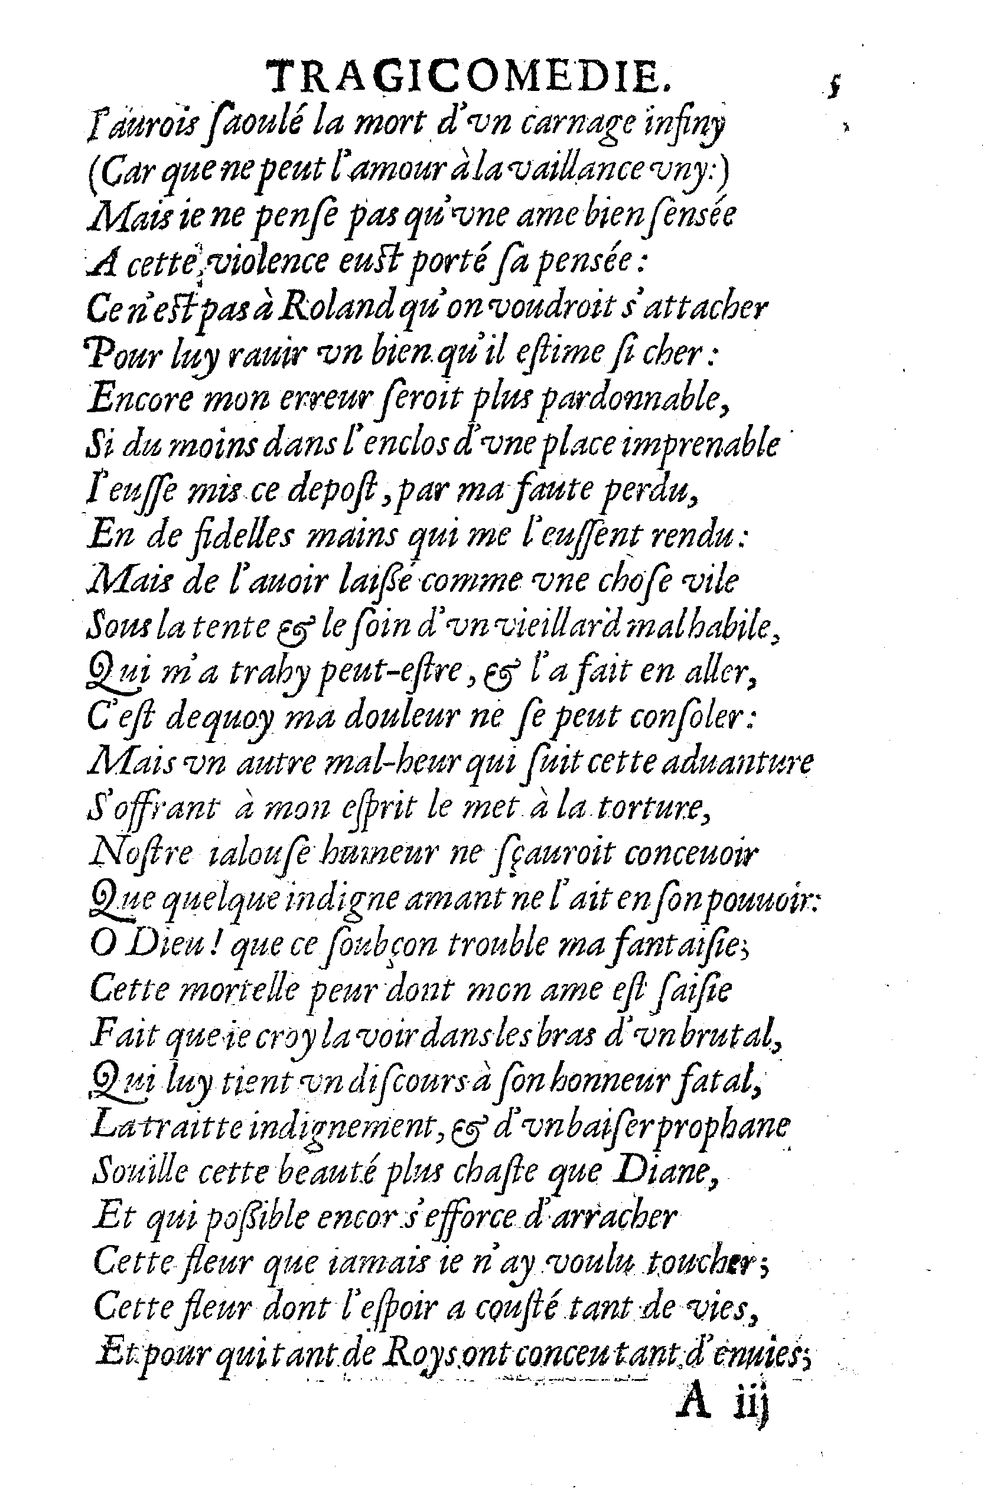 TRAGICOMEDIE. 5
I'aurois ſaoulé la mort d'vn carnage infiny
(Car que ne peut l'amour à la vaillance vny:)
Mais ie ne penſe pas qu'vne ame bien ſensée
A cette violence euſt porté ſa pensée:
Ce n'eſt pas à Roland qu'on voudroit s'attacher
Pour luy rauir vn bien qu'il eſtime ſi cher:
Encore mon erreur ſeroit plus pardonnable,
Si du moins dans l'enclos d'vne place imprenable
I'euſſe mis ce depoſt, par ma faute perdu,
En de fidelles mains qui me l'euſſent rendu:
Mais de l'auoir laißé comme vne choſe vile
Sous la tente & le ſoin d'vn vieillard malhabile,
Qui m'a trahy peut-eſtre, & l'a fait en aller,
C'eſt dequoy ma douleur ne ſe peut conſoler:
Mais vn autre mal-heur qui ſuit cette aduanture
S'offrant à mon eſprit le met à la torture,
Noſtre ialouſe humeur ne ſçauroit conceuoir
Que quelque indigne amant ne l'ait en ſon pouuoir:
O Dieu! que ce ſoubçon trouble ma fantaiſie;
Cette mortelle peur dont mon ame eſt ſaiſie
Fait que ie croy la voir dans les bras d'vn brutal,
Qui luy tient vn diſcours à ſon honneur fatal,
La traitte indignement, & d'vn baiſer prophane
Souille cette beauté plus chaſte que Diane,
Et qui poßible encor s'efforce d'arracher
Cette fleur que iamais ie n'ay voulu toucher;
Cette fleur dont l'eſpoir a couſté tant de vies,
Et pour qui tant de Roys ont conceu tant d'enuies;
A iij